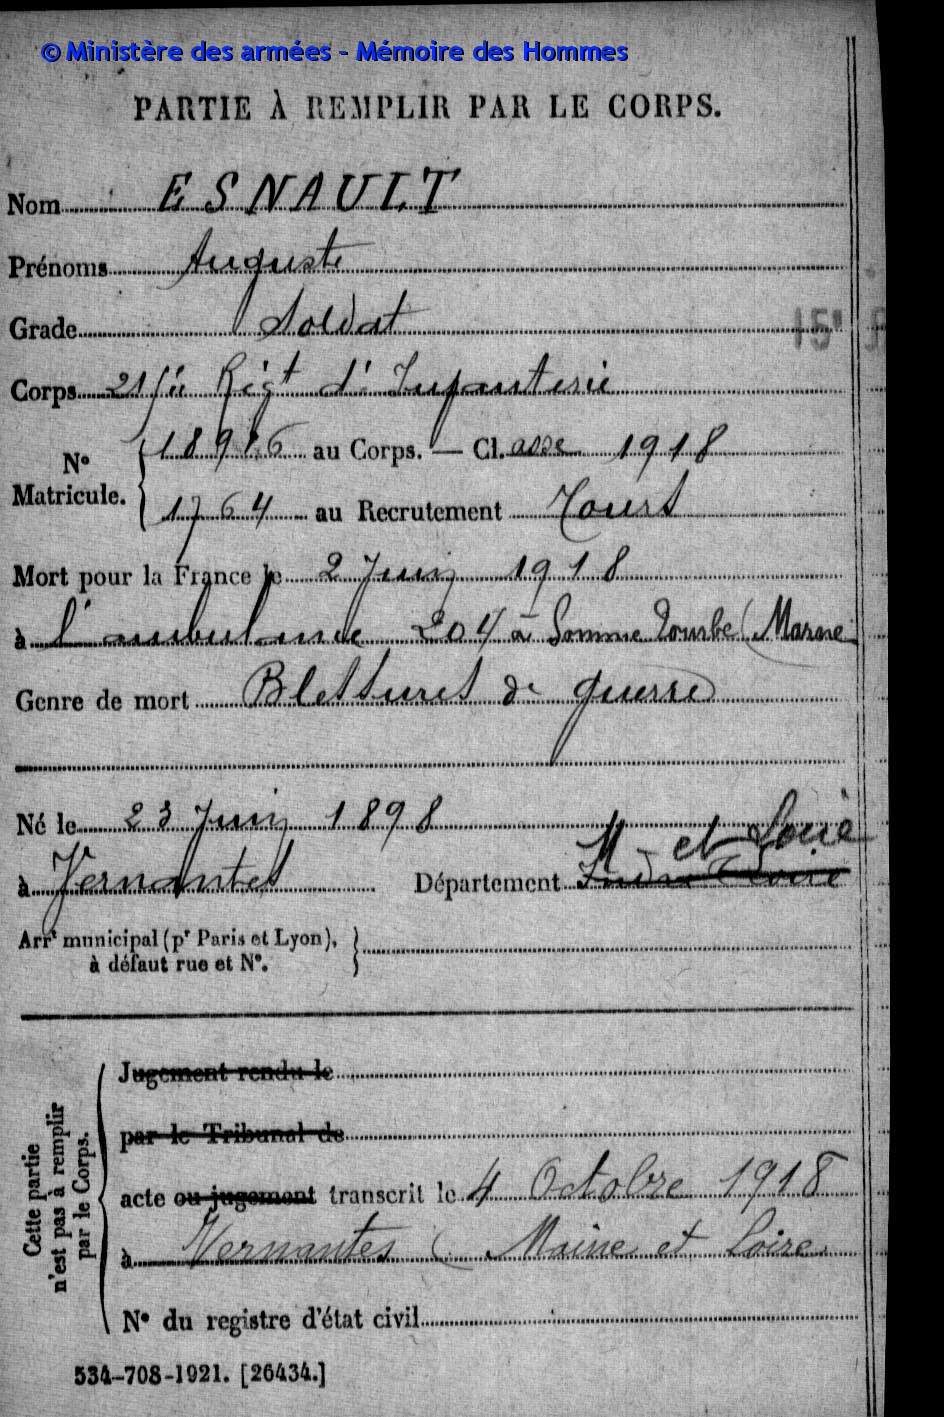 © Ministère des armées - Mémoire des Hommes
PARTIE À REMPLIR PAR LE CORPS.
Nom ESNAULT
Prénoms Auguste
Grade Soldat
15
Corps Régt d'Infanterie
N° Matricule. { 18916 au Corps. — Cl. asse 1918
1764 au Recrutement Tours
Mort pour la France le 2 Juin 1918
à l'ambulance 204 à Somme Tourbe (Marne
Genre de mort Blessures de guerre
Né le 23 Juin 1898
M- et Loire
à Vernantes Département Indre et Loire
Arrt municipal (pr Paris et Lyon), à défaut rue et N°. }
Cette partie n'est pas à remplir par le Corps.
Jugement rendu le
par le Tribunal de
acte ou jugement transcrit le 4 Octobre 1918
à Vernantes (Maine et Loire
N° du registre d'état civil
534-708-1921. [26434.]